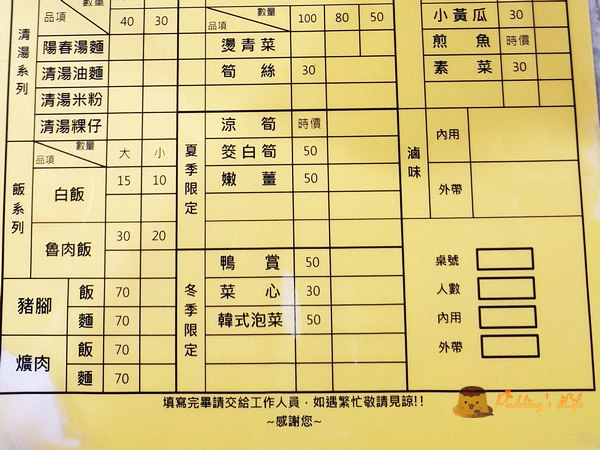 數量
品項
40 30
清湯系列
陽春湯麵
清湯油麵
清湯米粉
清湯粿仔
數量
品項
大 小
飯系列
白飯 15 10
魯肉飯 30 20
豬腳 飯 70
麵 70
爌肉 飯 70
麵 70
數量
品項
100 80 50
燙青菜
筍絲 30
夏季限定
涼筍 時價
筊白筍 50
嫩薑 50
冬季限定
鴨賞 50
菜心 30
韓式泡菜 50
小黃瓜 30
煎魚 時價
素菜 30
滷味
內用
外帶
桌號
人數
內用
外帶
填寫完畢請交給工作人員，如遇繁忙敬請見諒!!
~感謝您~
Pudding's Life